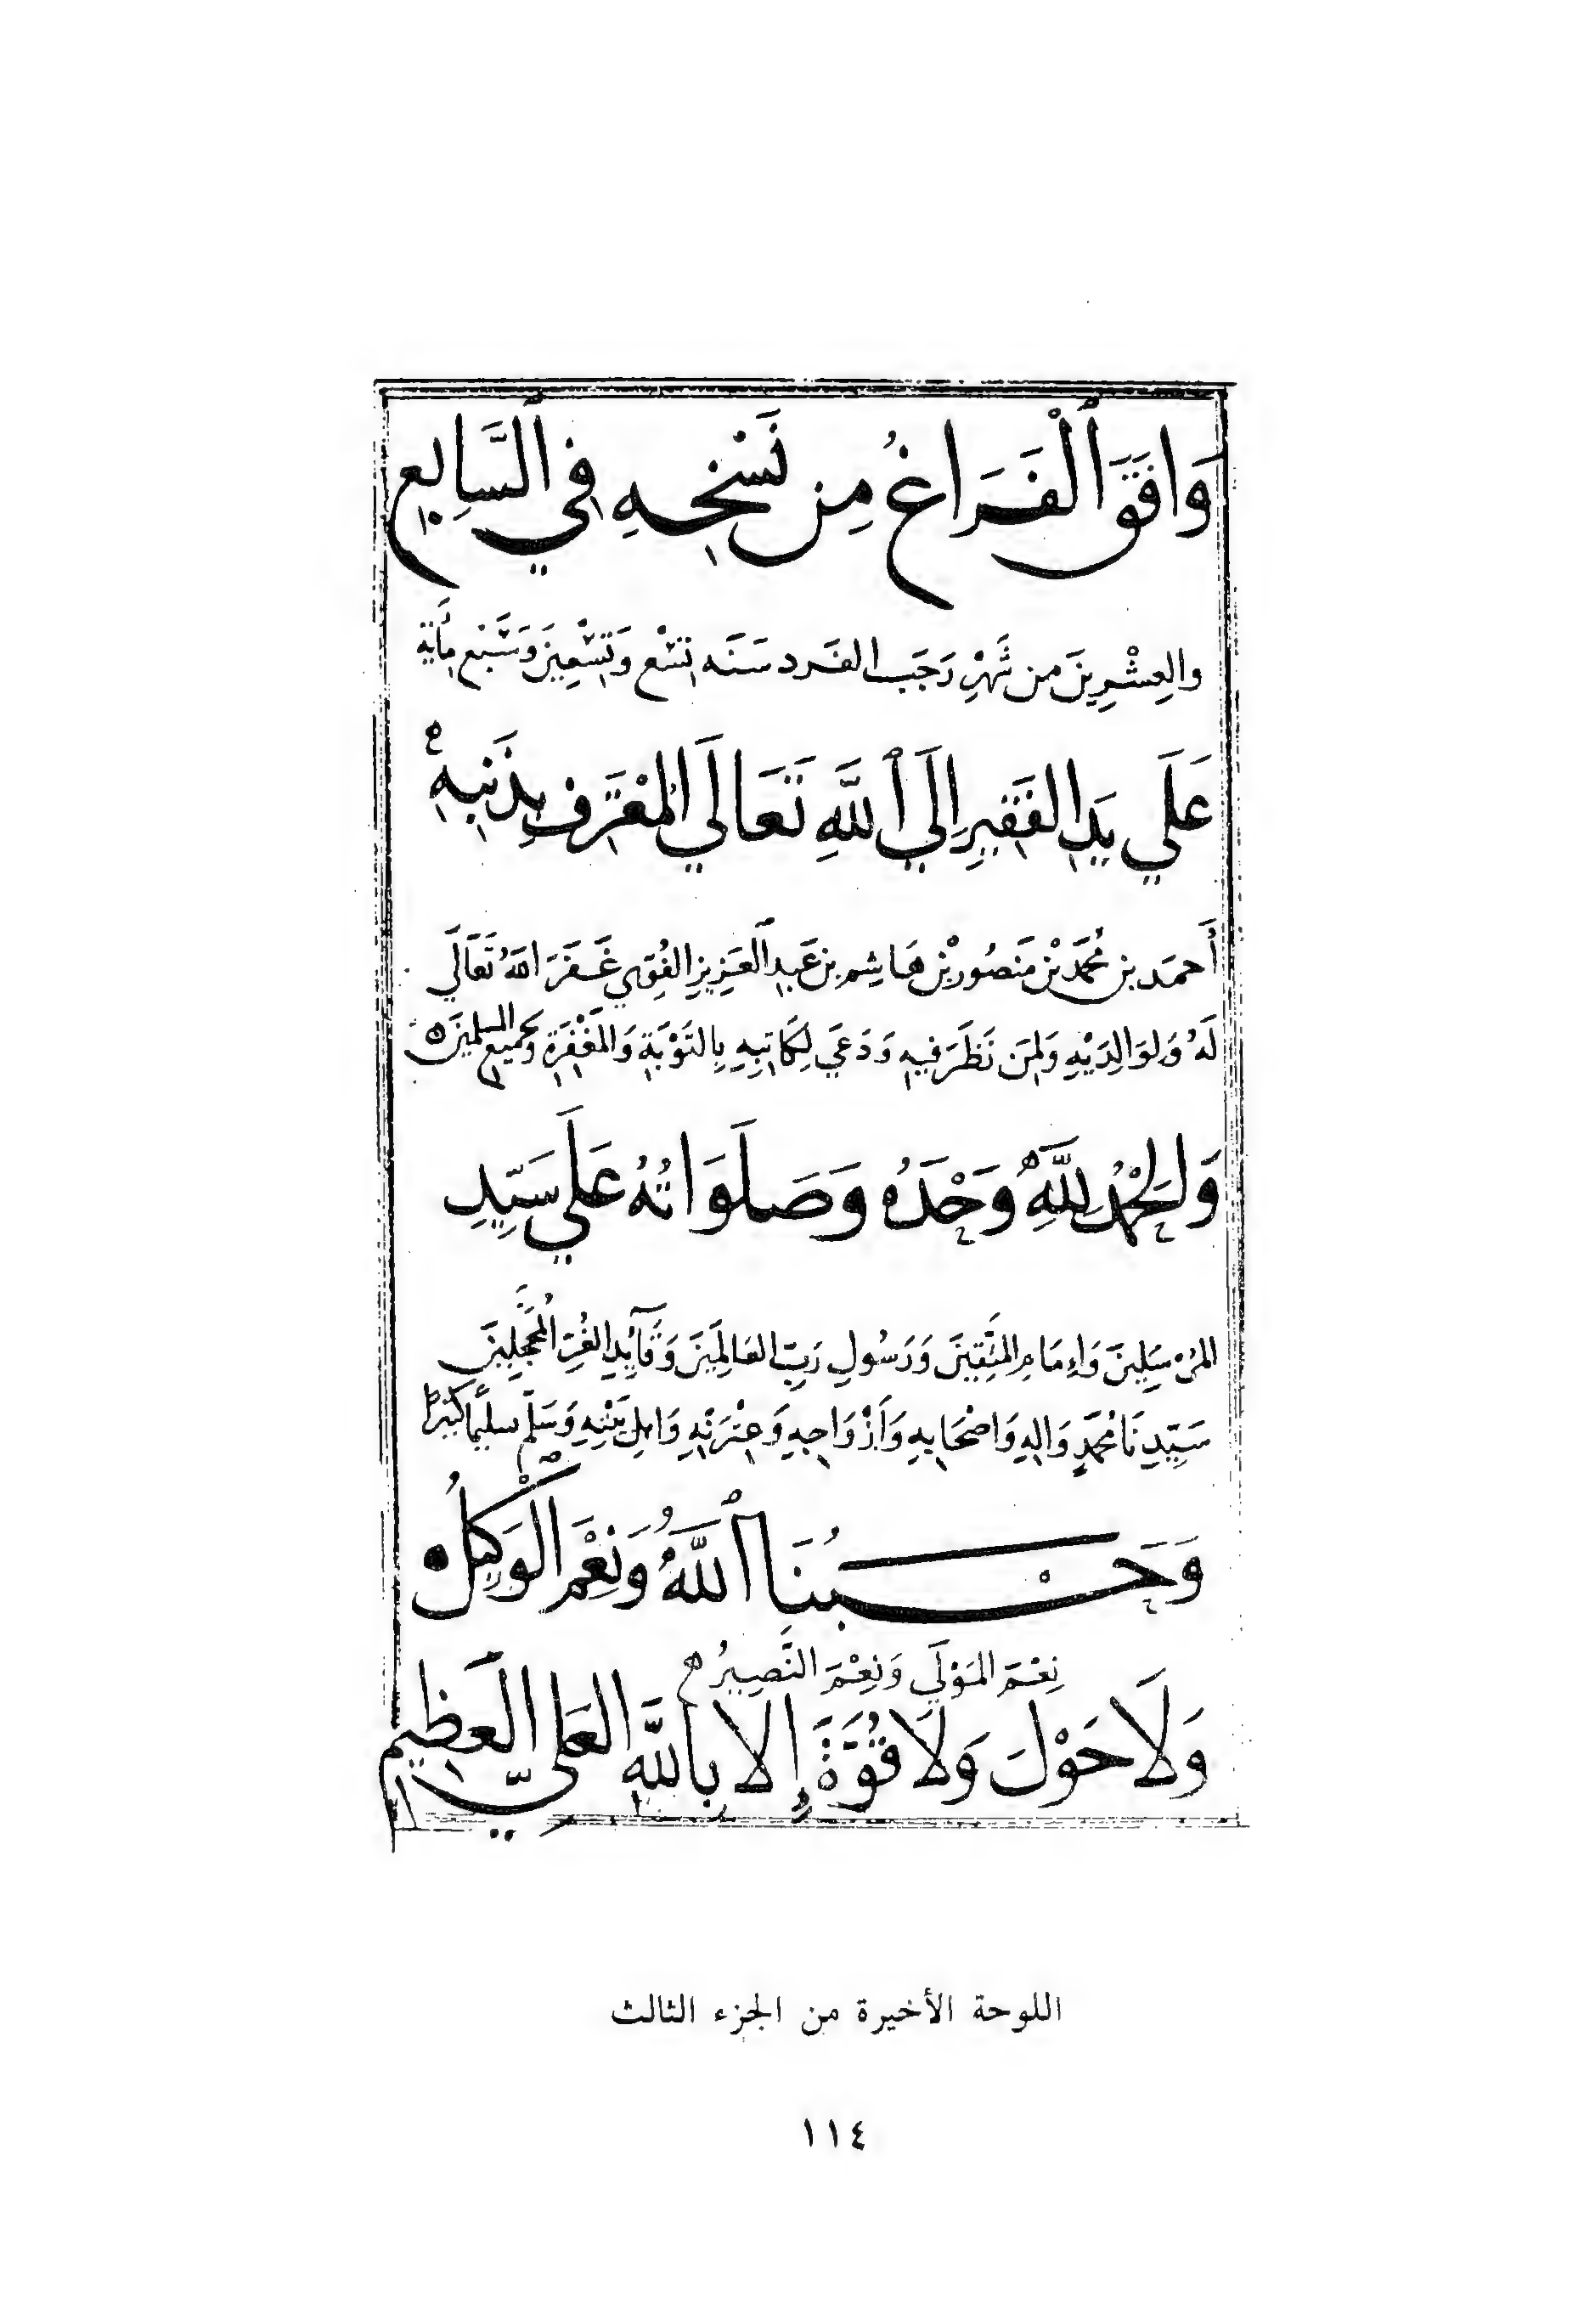 وَافَقَ ٱلْفَرَاغُ مِن نَسْخِهِ فِي ٱلسَّابِعِ
والعِشْرِينَ من شَهْرِ رَجَب الفَرد سَنَه تِسْع وَتِسْعِينَ وَسَبْع مِأَية
عَلَي يَدِ الفَقِيرِ إِلَي ٱللَّهِ تَعَالَي المُعْتَرِف بِذَنبِهِ ه
أَحمَد بن مُحَمَّد بْن مَنصُور بْن هَاشِم بن عَبدِ ٱلعَزِيزِ الفُوِّي غَفَرَ اللهُ تَعَالَي
لَهُ وَلوَالِدَيْهِ وَلِمَن نَظَرَ فِيهِ وَدَعَي لِكَاتِبِهِ بِالتَوْبَةِ وَالمَغْفِرَةِ وَلجميع المسلمينَ ه
وَالحَمْدُ لِلَّهِ وَحْدَهُ وَصَلَوَاتُهُ عَلَي سَيِّدِ
المُرْسَلِينَ وَإِمَامِ المُتَّقِينَ وَرَسُولِ رَبِّ العَالَمِينَ وَقَآيِدِ الغُرِّ المُحَجَّلِينَ
سَيِّدِنَا مُحَمَّدٍ وَالِهِ وَاصْحَابِهِ وَأَزْوَاجِهِ وَعِتْرَتِهِ وَاهلِ بَيْتِهِ وَسَلَّم كَثِيرًا
وَحَسْبُنَا ٱللَّهُ وَنِعْمَ الْوَكِيلُ ه
نِعْمَ المَوْلَي وَنِعْمَ النَّصِيرُ ه
وَلَا حَوْلَ وَلَا قُوَّةَ إِلا بِاللَّهِ العَلِيِّ العَظِيمِ
اللوحة الأخيرة من الجزء الثالث
١١٤